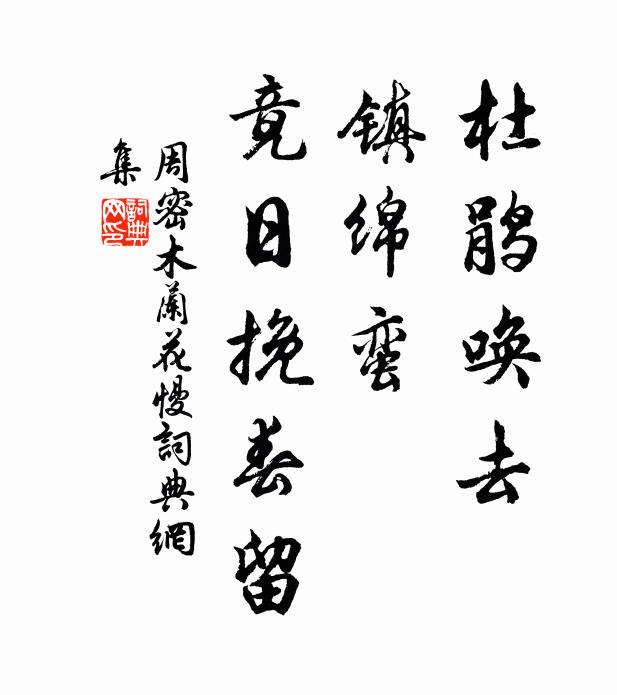 杜鹃唤去
镇绵蛮
竟日挽春留
周密木蘭花慢詞典網
集
詞典
网印